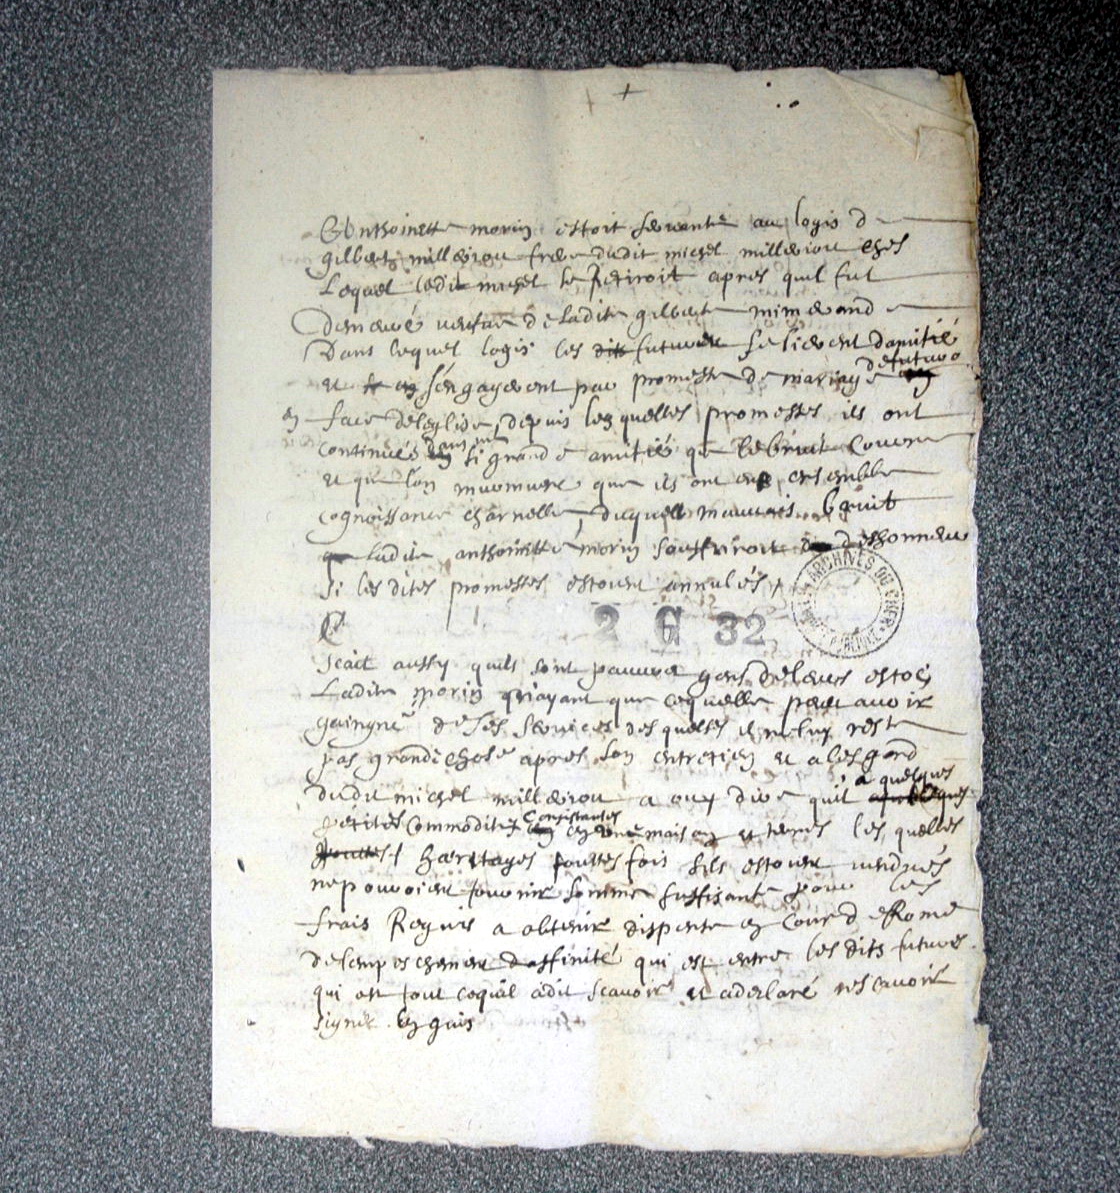 Anthoinette morin estoit servante au logis de
gilbert milleriou frere dudit michel milleriou ches
Lequel ledit michel se Retiroit apres quil fut
demeuré veufve de ladite gilberte mimerand
Dans lequel logis les dits futures se lierent damitié
et sengagerent par promesse de mariage de futuro
en face de leglise, depuis lesquelles promesses ils ont
continués dans une si grande amitié que le bruit Couvre
et que lon murmure que ils ont eus ensemble
cognoissance charnelle, duquel mauvais bruit
ladite anthoinette morin souffriroit deshonneur
si les dites promesses estoient annulés
ARCHIVES DU CHER
2 G 32
scait aussy quils sont pauvres gens de leurs estoc
Ladite morin n'ayant que cequelle peut avoir
gaingné de ses services des quelles il ne luy reste
pas grande chose apres son entretien et a lesgard
dudit michel milleriou a ouy dire quil a quelques
petites Commodités Consistantes en une maison et terres les quelles
heritages touttes fois sils estoient vendues
ne pouvoient fournir somme suffisante pour les
frais Requis a obtenir dispense en Cour de Rome
de lempeschement daffinité qui est entre les dits futures
qui est tout cequil a dit scavoir et a declaré ne scavoir
signer